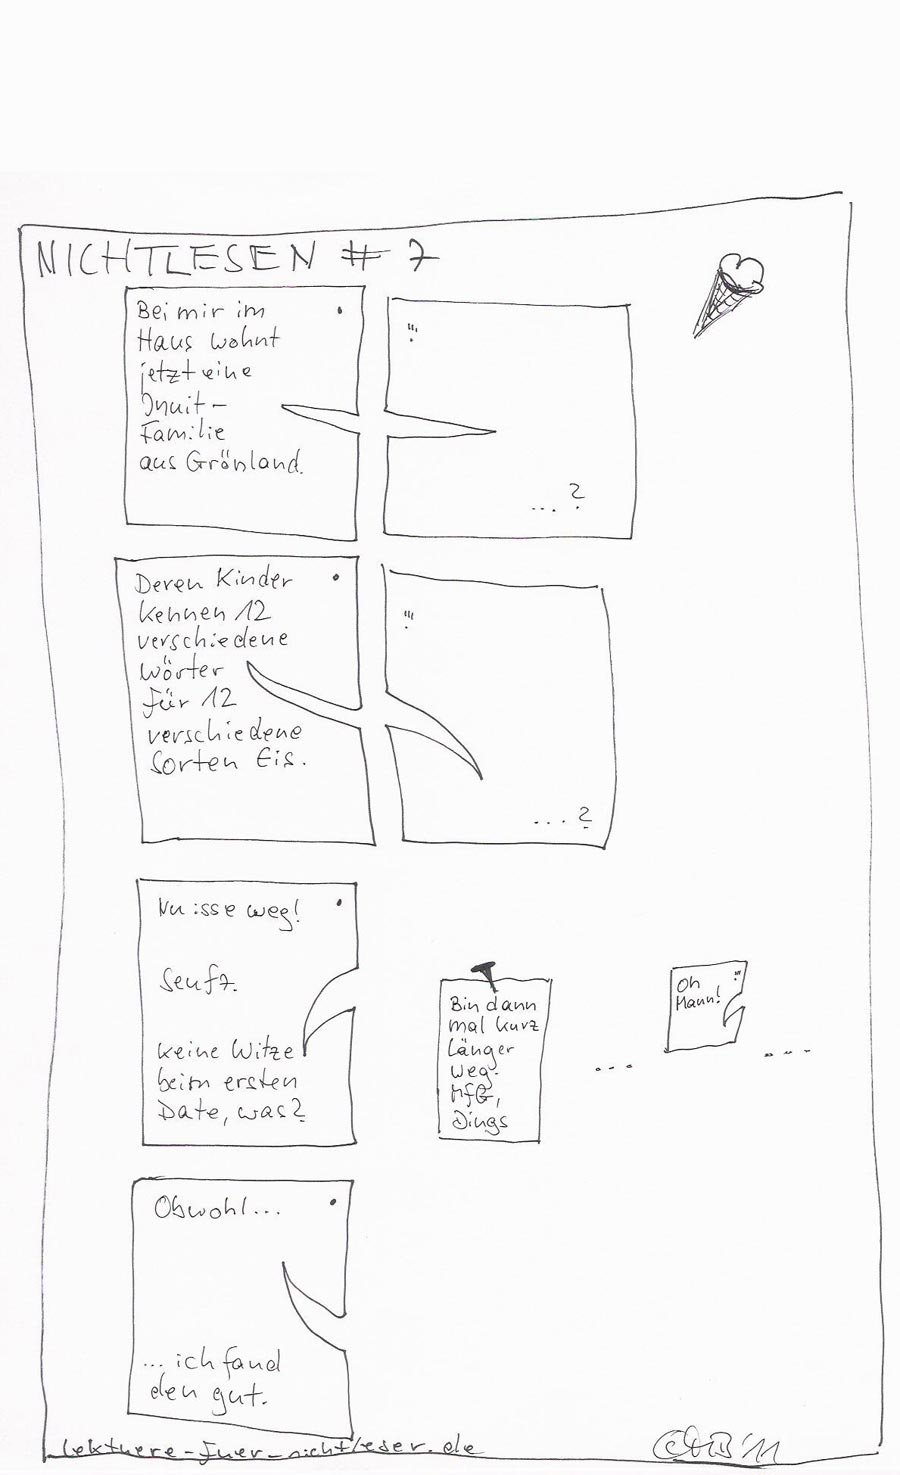 NICHTLESEN # 7
Bei mir im
Haus wohnt
jetzt eine
Inuit-
Familie
aus Grönland.
... ?
Deren Kinder
kennen 12
verschiedene
Wörter
für 12
verschiedene
Sorten Eis.
... ?
Nu isse weg!
Seufz.
Keine Witze
beim ersten
Date, was?
Bin dann
mal kurz
länger
weg.
MfG,
Dings
...
Oh
Mann!
....
Obwohl...
... ich fand
den gut.
lektuere-fuer-nichtleser.de